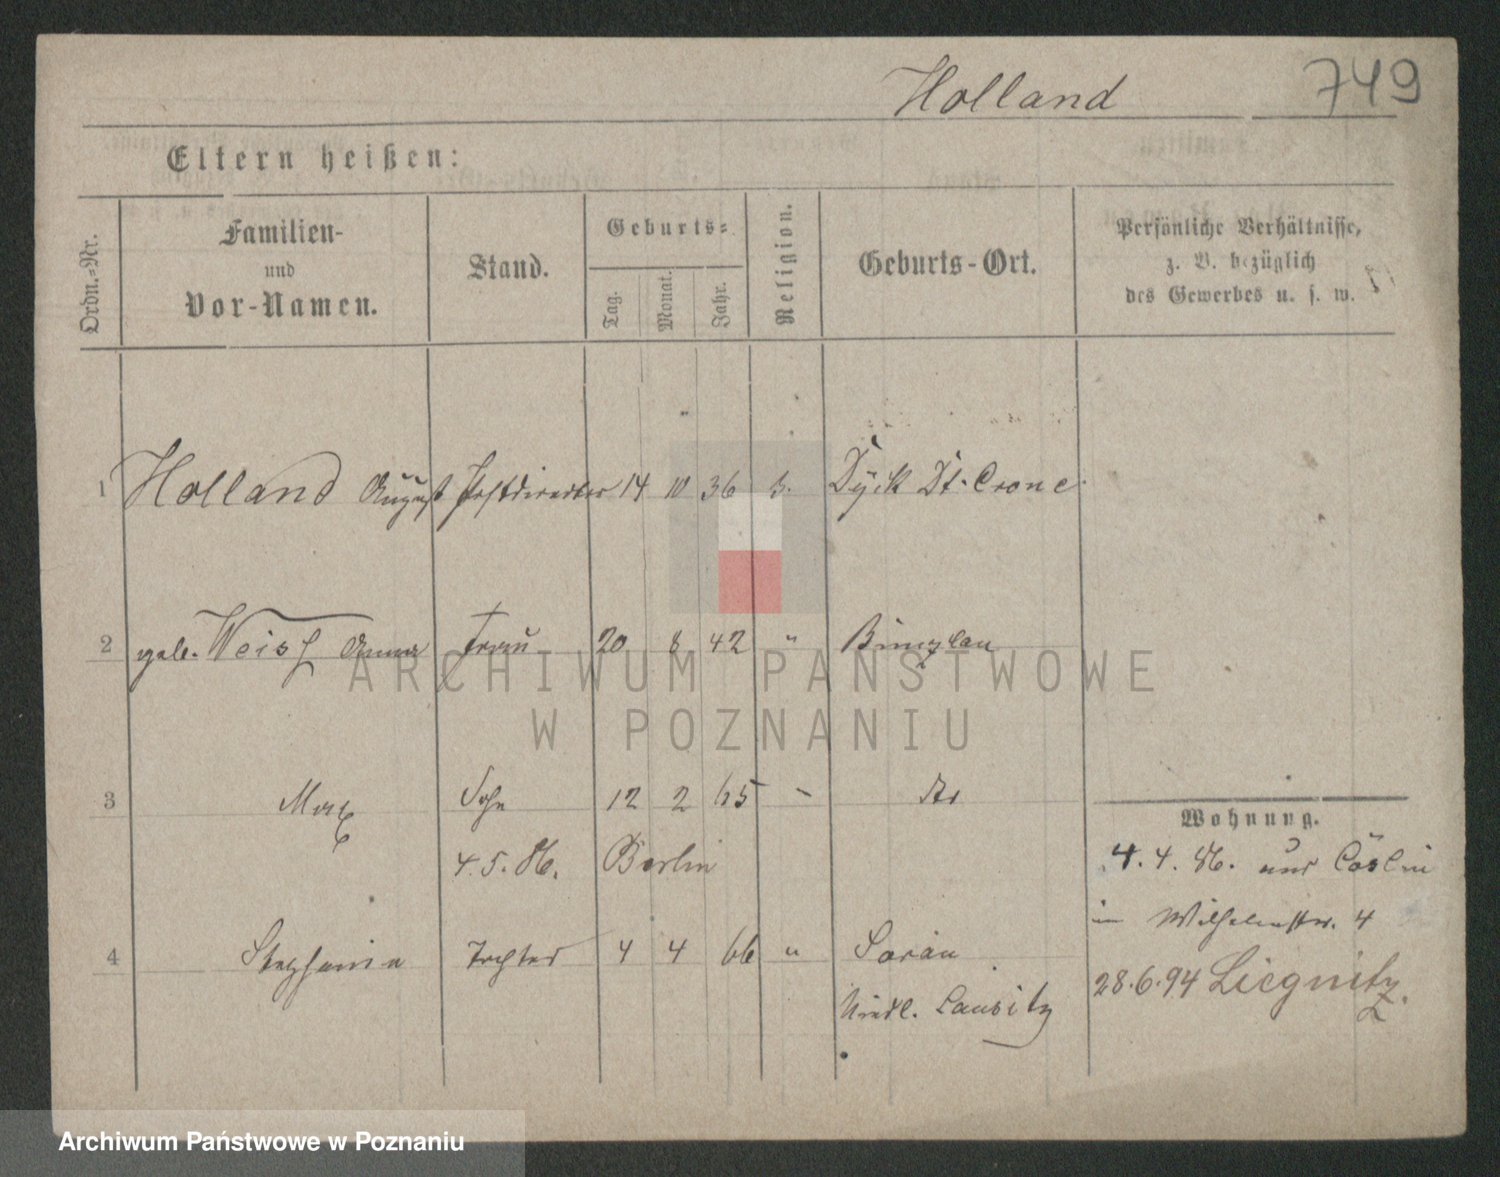 Holland 749
Eltern heißen:
Ordn.=Nr. Familien- und Vor-Namen. Stand. Geburts= Tag. Monat. Jahr. Religion. Geburts-Ort. Persönliche Verhältnisse, z. B. bezüglich des Gewerbes u. s. w.
1 Holland August Postdirector 14 10 36 Dyck Dt. Crone
2 geb. Weiss Anna Frau 20 8 42 " Bunzlau
3 Max Sohn 12 2 65 "
Wohnung.
4. 5. 86. Berlin
4. 4. 86. aus Cöslin
Wilhelmstr. 4
4 Stephanie Tochter 4 4 66 " Sorau
Niedl. Lausitz
28.6.94 Liegnitz.
ARCHIWUM PAŃSTWOWE
W POZNANIU
Archiwum Państwowe w Poznaniu